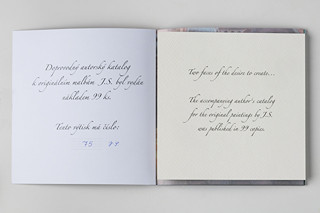 Doprovodný autorský katalog
k originálním malbám J.S. byl vydán
nákladem 99 ks.
Tento výtisk má číslo:
75
Two faces of the desire to create...
The accompanying author's catalog
for the original paintings by J.S.
was published in 99 copies.